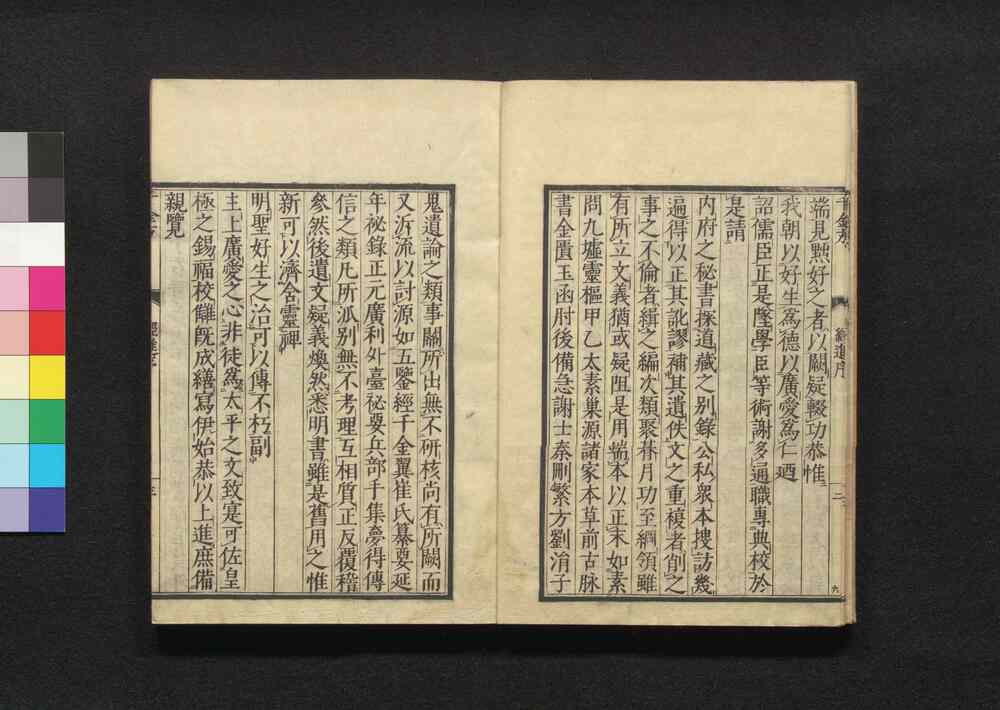 端見黙好之者以闕疑輟功恭惟
我朝以好生爲德以廣愛爲仁廼
詔儒臣正是墜學臣等術謝多遍職專典校於
是請
内府之秘書探道藏之别錄公私衆本搜訪幾
遍得以正其訛謬補其遺佚文之重複者削之
事之不倫者緝之編次類聚朞月功至綱領雖
有所立文義猶或疑阻是用端本以正末如素
問九墟靈樞甲乙太素巢源諸家本草前古脉
書金匱玉函肘後備急謝士泰刪繁方劉涓子
鬼遺論之類事關所出無不研核尚有所闕而
又泝流以討源如五鑒經千金翼崔氏纂要延
年祕錄正元廣利外臺祕要兵部手集夢得傳
信之類凡所派别無不考理互相質正反覆稽
參然後遺文疑義煥然悉明書雖是舊用之惟
新可以濟含靈裨
明聖好生之治可以傳不朽副
主上廣愛之心非徒爲太平之文致寔可佐皇
極之錫福校讎既成繕寫伊始恭以上進庶備
親覽
經進序
二
六